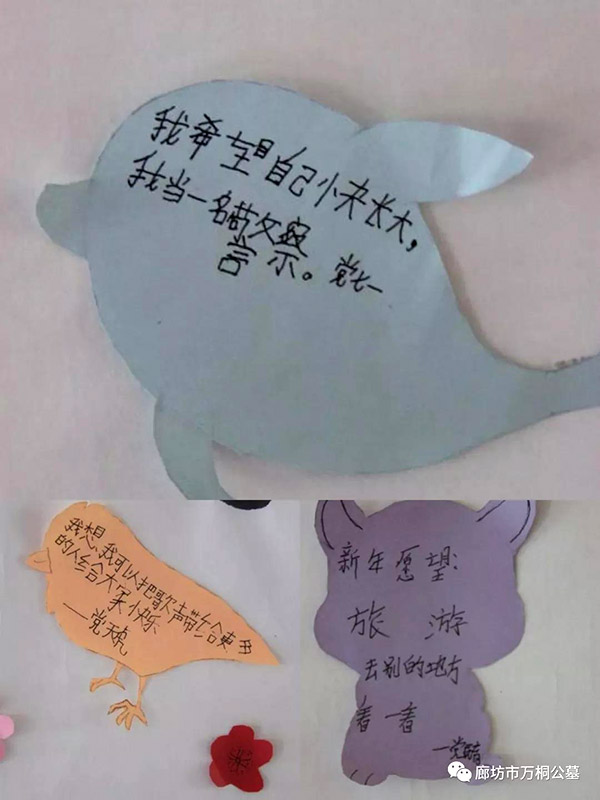 我希望自己快长大,
我当一名警察。党
我想,我可以把歌声带给更多
的人给大家快乐
——党天虎
新年愿望:
旅 游
去别的地方
看一看
—党
廊坊市万桐公墓